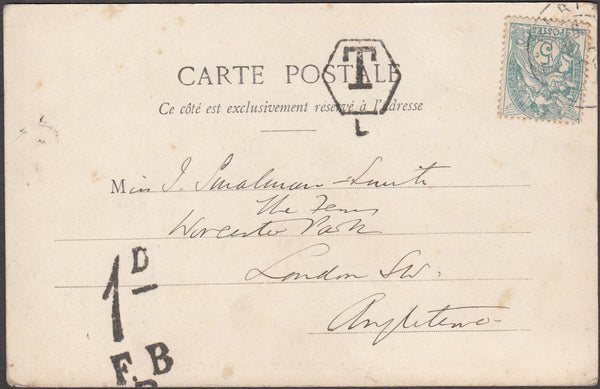 T
L
5
POSTES
CARTE POSTALE
Ce côté est exclusivement réservé à l'adresse
Miss J. Smalman-Smith
The
Worcester Park
London SW.
Angleterre
1D
F.B